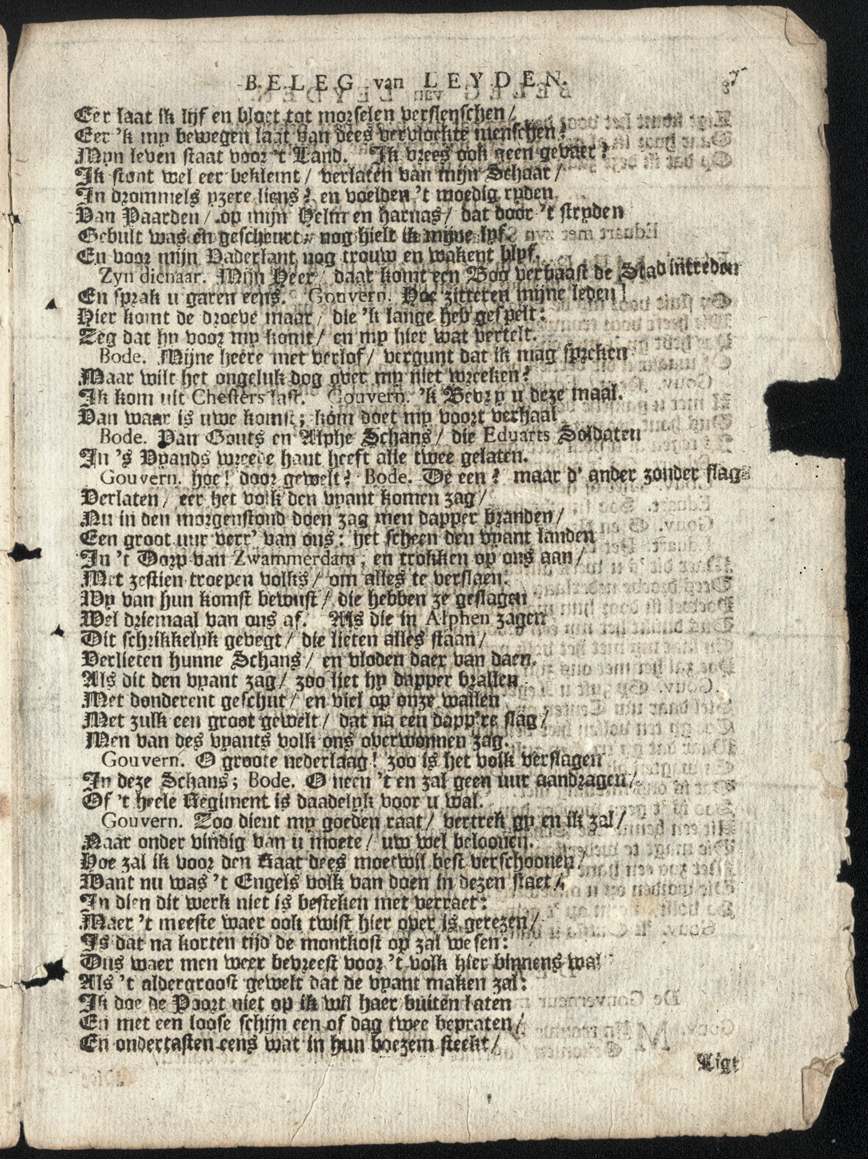 BELEG van LEYDEN. 7
Eer laat ik lijf en bloet tot morselen verslenschen /
Eer 'k my bewegen laat van dees vervlochte menschen?
Myn leven staat voor 't Land. Ik vrees ook geen gevaer?
Ik stont wel eer beklemt / verlaten van mijn Schaar /
In drommels yzere liens? en voelden 't moedig ryden
Van Paarden / op mijn Helm en harnas / dat door 't stryden
Gebult was en gescheurt, nog hielt ik mijne lyf.
En voor mijn Vaderlant nog trouw en wakent blyf.
Zyn dienaar. Mijn Heer / daar komt een Bod verbaast de Stad intreden
En sprak u garen eens. Gouvern. Hoe zitteren mijne leden!
Hier komt de droeve maar / die 'k lange heb gespelt:
Zeg dat hy voor my komt / en my hier wat vertelt.
Bode. Mijne heere met verlof / vergunt dat ik mag spreken
Maar wilt het ongeluk dog over my niet wreeken?
Ik kom uit Chesters last. Gouvern. 'k Bevry u deze maal.
Van waar is uwe komst; kom doet my voort verhaal
Bode. Van Gouts en Alphe Schans / die Eduarts Soldaten
In 's Vyands wreede hant heeft alle twee gelaten.
Gouvern. hoe! door gewelt? Bode. De een? maar d' ander zonder slag
Verlaten / eer het volk den vyant komen zag /
Nu in den morgenstond doen zag men dapper branden /
Een groot uur verr' van ons: het scheen den vyant landen
In 't Dorp van Zwammerdam, en trokken op ons aan /
Met zestien troepen volks / om alles te verslaen:
Wy van hun komst bewust / die hebben ze geslagen
Wel driemaal van ons af. Als die in Alphen zagen
Dit schrikkelyk gevegt / die lieten alles staan /
Verlieten hunne Schans / en vloden daer van daen.
Als dit den vyant zag / zoo liet hy dapper brallen
Met donderent geschut / en viel op onze wallen
Met zulk een groot gewelt / dat na een dapp're slag /
Men van des vyants volk ons overwonnen zag.
Gouvern. O groote nederlaag! zoo is het volk verslagen
In deze Schans; Bode. O neen 't en zal geen uur aandragen /
Of 't heele Regiment is daadelyk voor u wal.
Gouvern. Zoo dient my goeden raat / vertrek gy en ik zal /
Naar onder vindig van u moete / uw wel beloonen.
Hoe zal ik voor den Raat dees moetwil best verschoonen /
Want nu was 't Engels volk van doen in dezen staet /
In dien dit werk niet is besteken met verraet:
Maer 't meeste waer ook twist hier over is gerezen /
Is dat na korten tijd de montkost op zal wesen:
Dus waer men weer bevreest voor 't volk hier binnens wal
Als 't aldergroost gewelt dat de vyant maken zal:
Ik doe de Poort niet op ik wil haer buiten laten
En met een loose schijn een of dag twee bepraten /
En ondertasten eens wat in hun boezem steekt /
Ligt